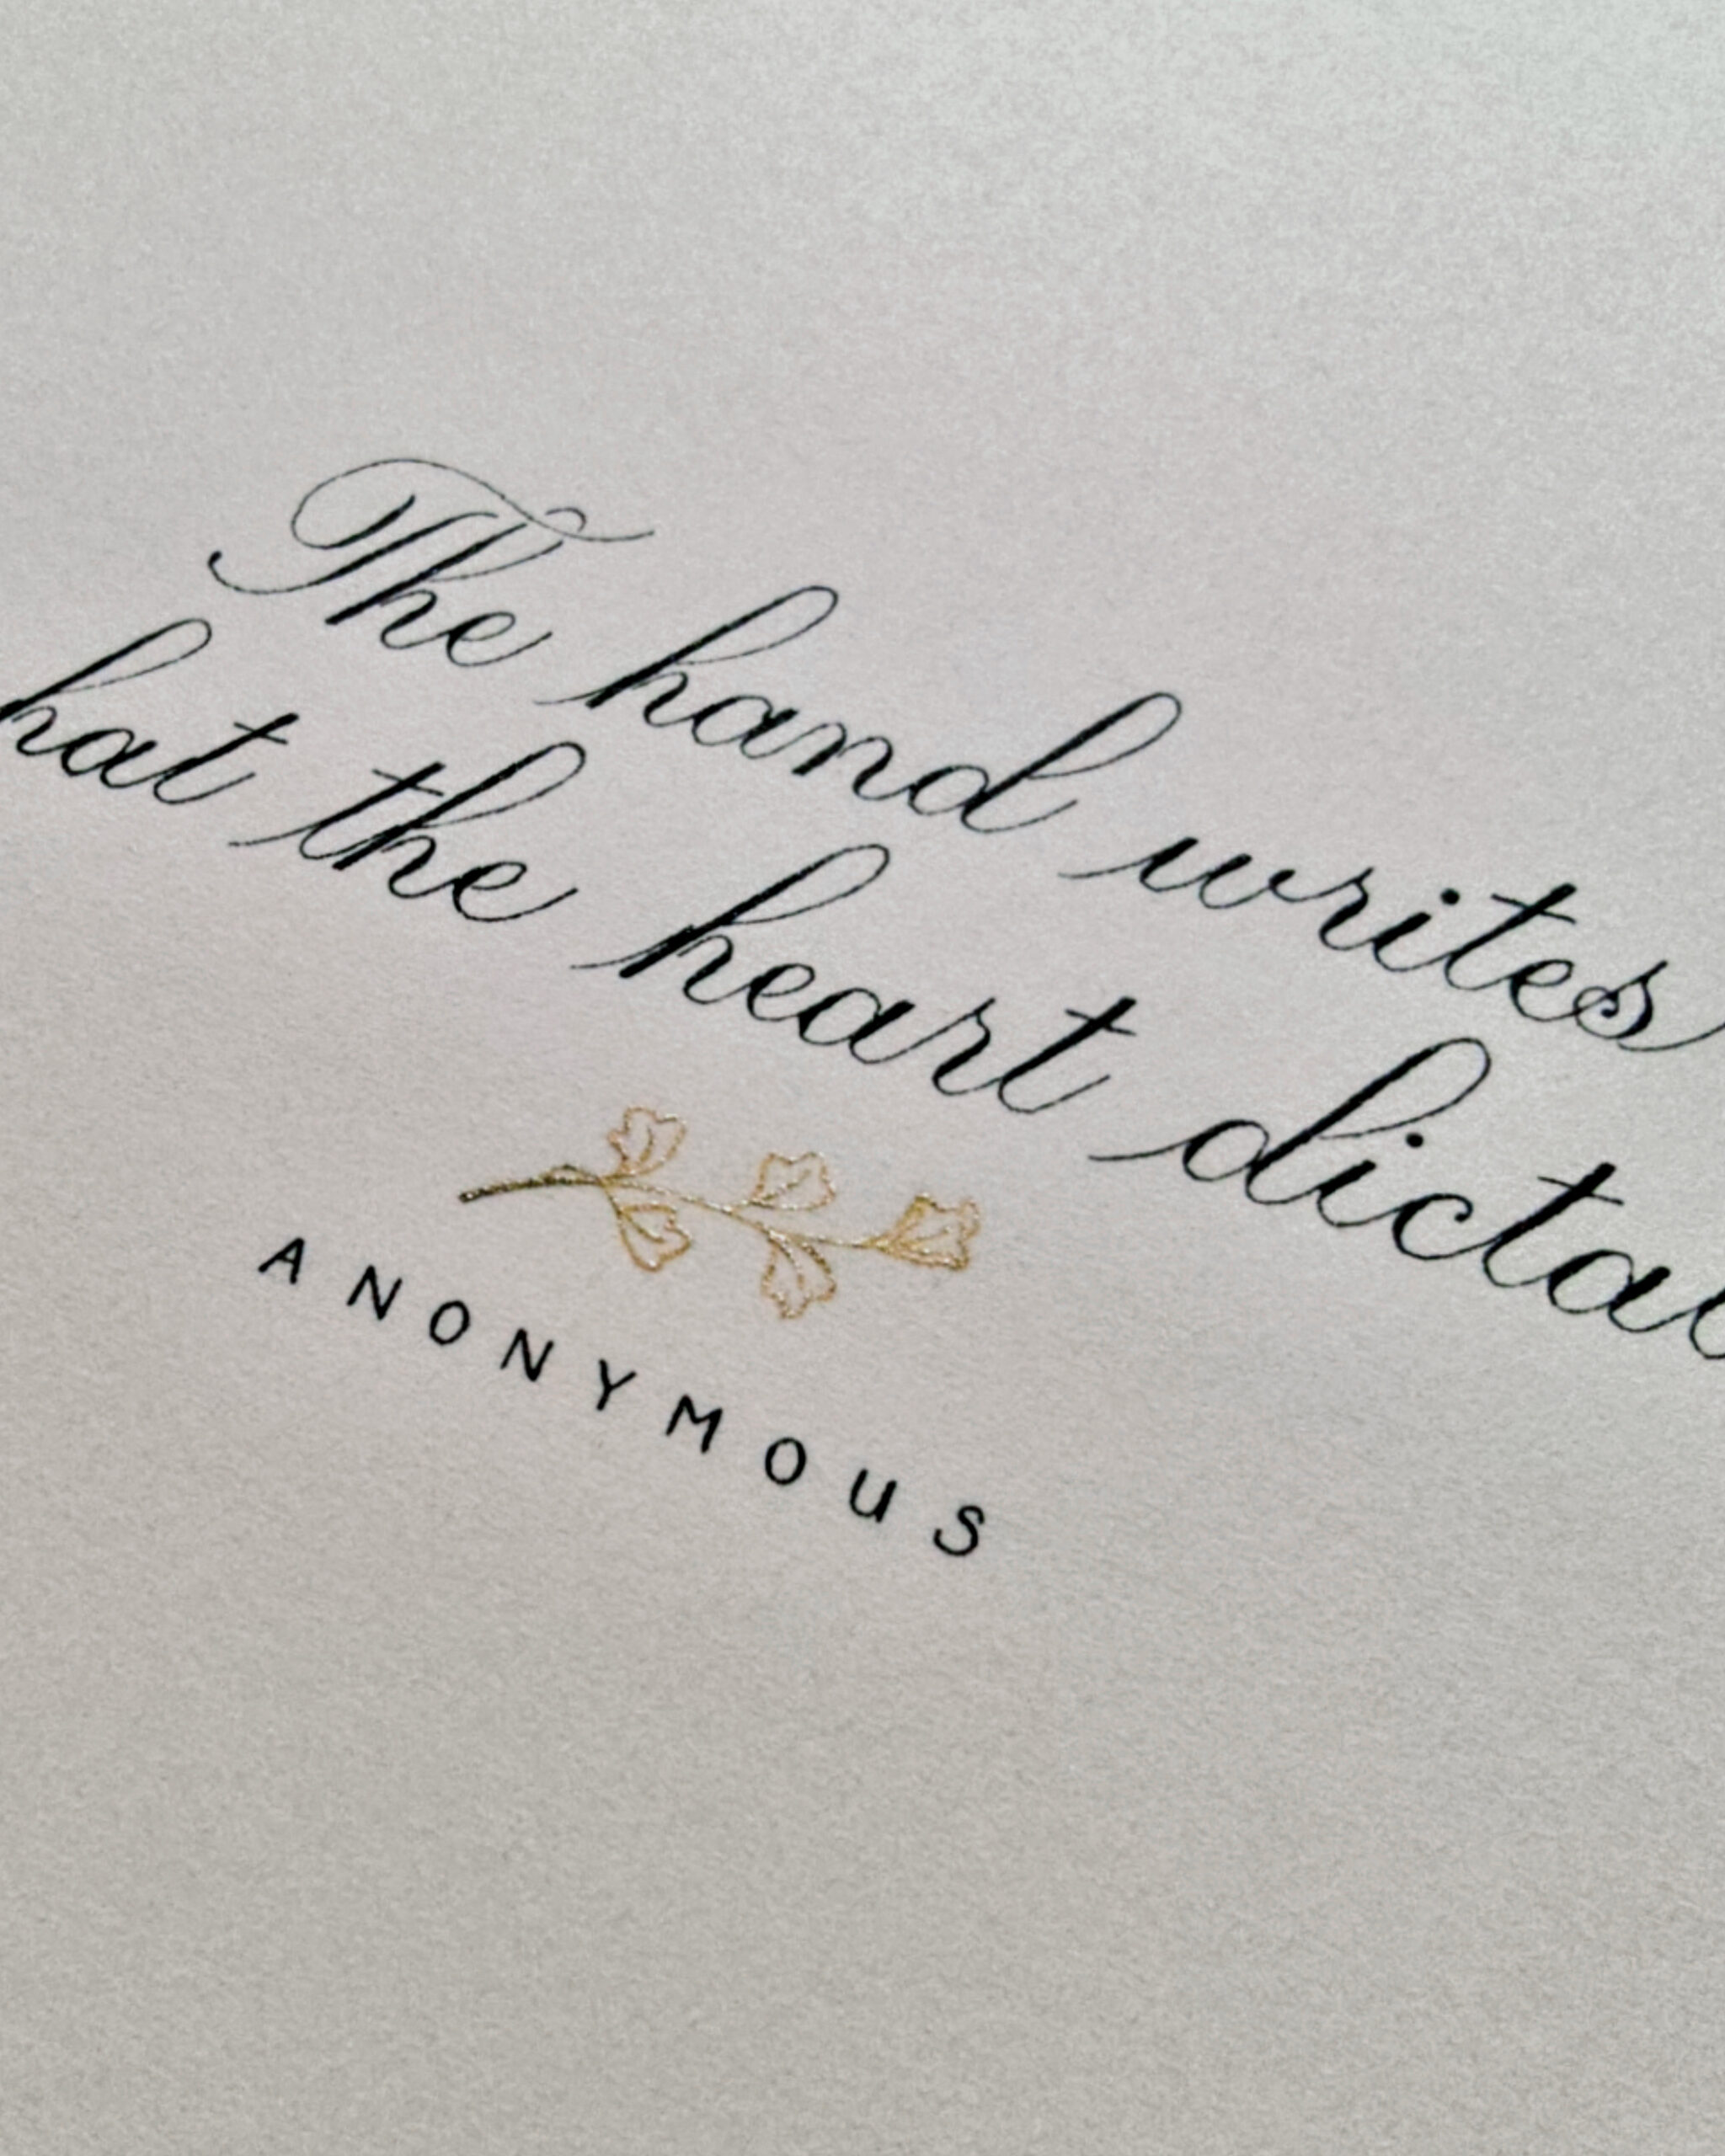 The hand writes
hat the heart dicta
ANONYMOUS